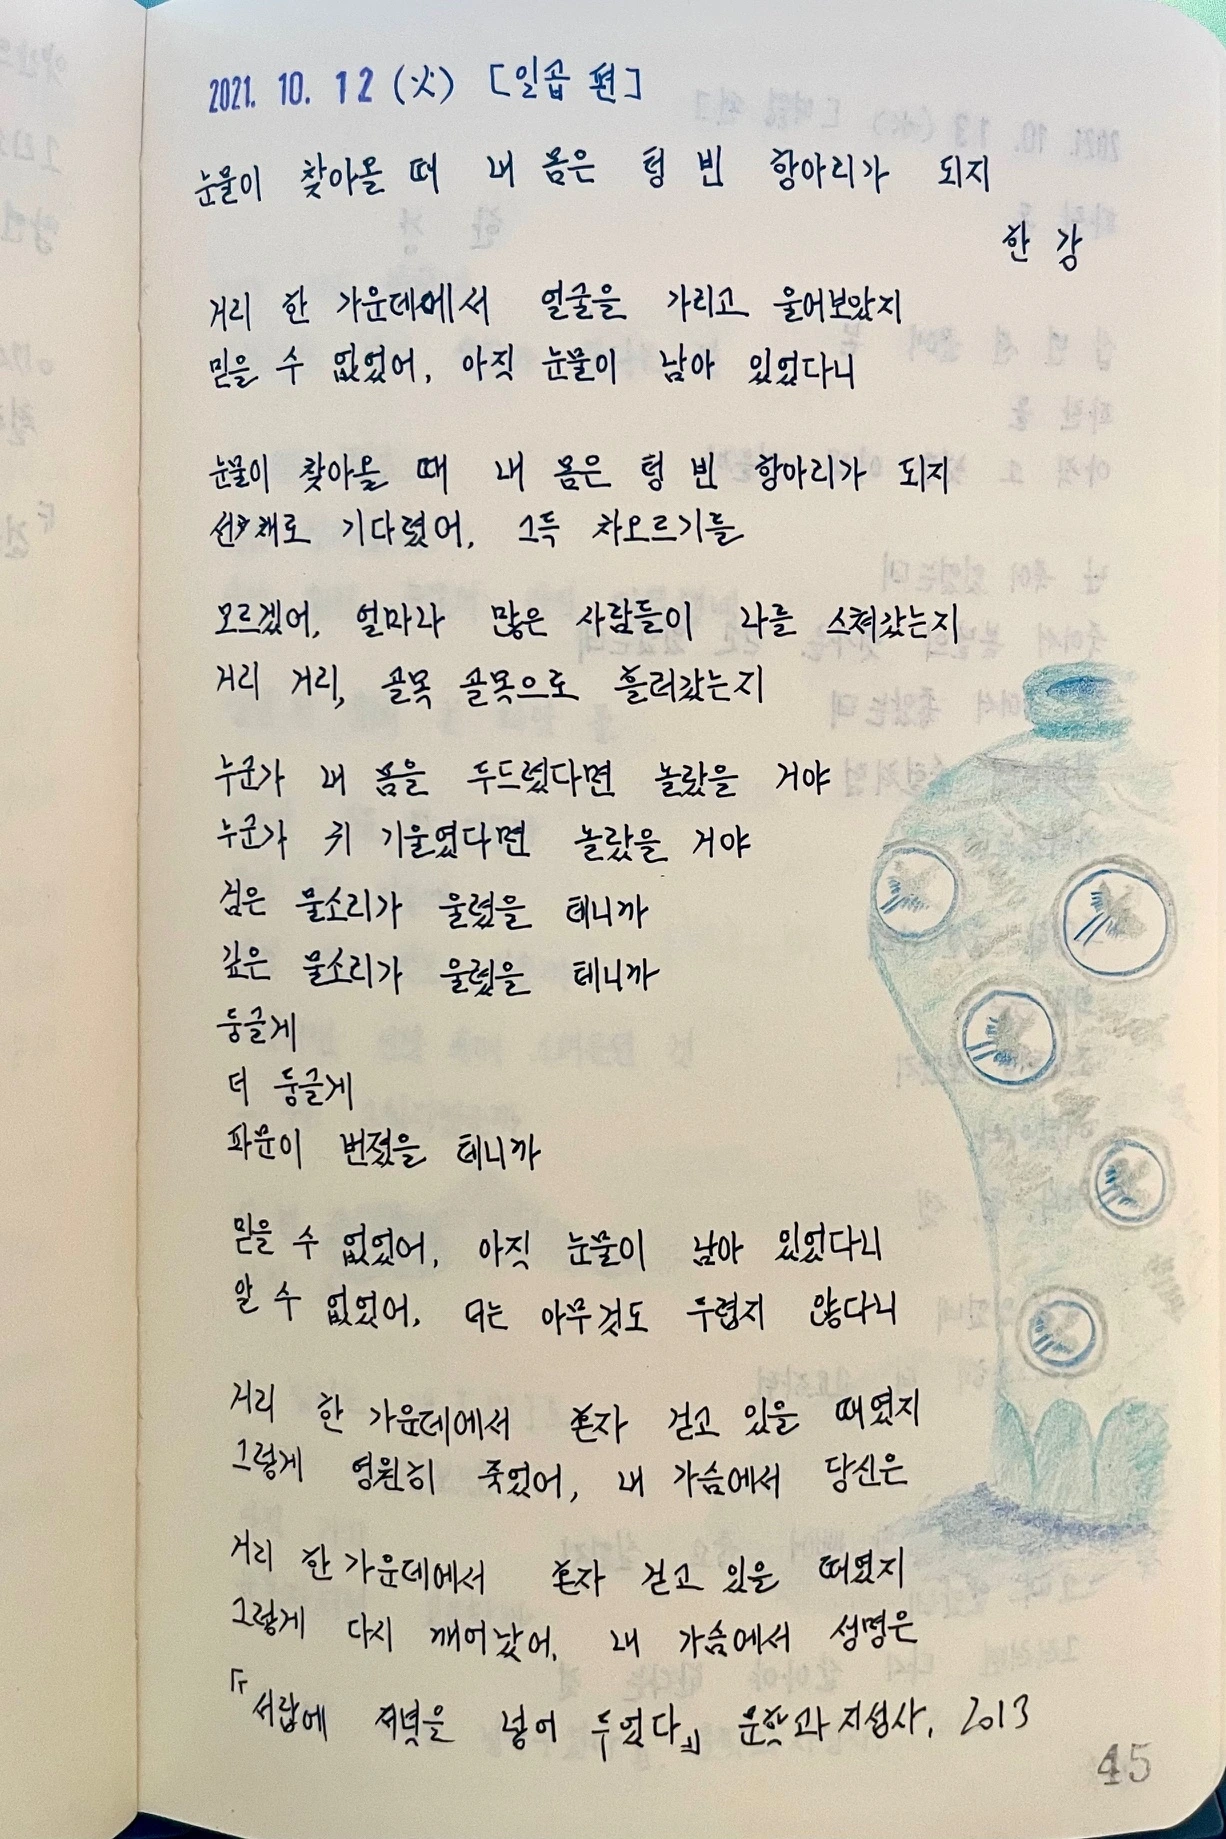 2021. 10. 12 (火) [일곱 편]
눈물이 찾아올 때 내 몸은 텅 빈 항아리가 되지
한 강
거리 한 가운데에서 얼굴을 가리고 울어보았지
믿을 수 없었어, 아직 눈물이 남아 있었다니
눈물이 찾아올 때 내 몸은 텅 빈 항아리가 되지
선 채로 기다렸어, 그득 차오르기를
모르겠어, 얼마나 많은 사람들이 나를 스쳐갔는지
거리 거리, 골목 골목으로 흘러갔는지
누군가 내 몸을 두드렸다면 놀랐을 거야
누군가 귀 기울였다면 놀랐을 거야
검은 물소리가 울렸을 테니까
깊은 물소리가 울렸을 테니까
둥글게
더 둥글게
파문이 번졌을 테니까
믿을 수 없었어, 아직 눈물이 남아 있었다니
알 수 없었어, 더는 아무것도 두렵지 않다니
거리 한 가운데에서 혼자 걷고 있을 때였지
그렇게 영원히 죽었어, 내 가슴에서 당신은
거리 한 가운데에서 혼자 걷고 있을 때였지
그렇게 다시 깨어났어, 내 가슴에서 생명은
『서랍에 저녁을 넣어 두었다』 문학과지성사, 2013
45